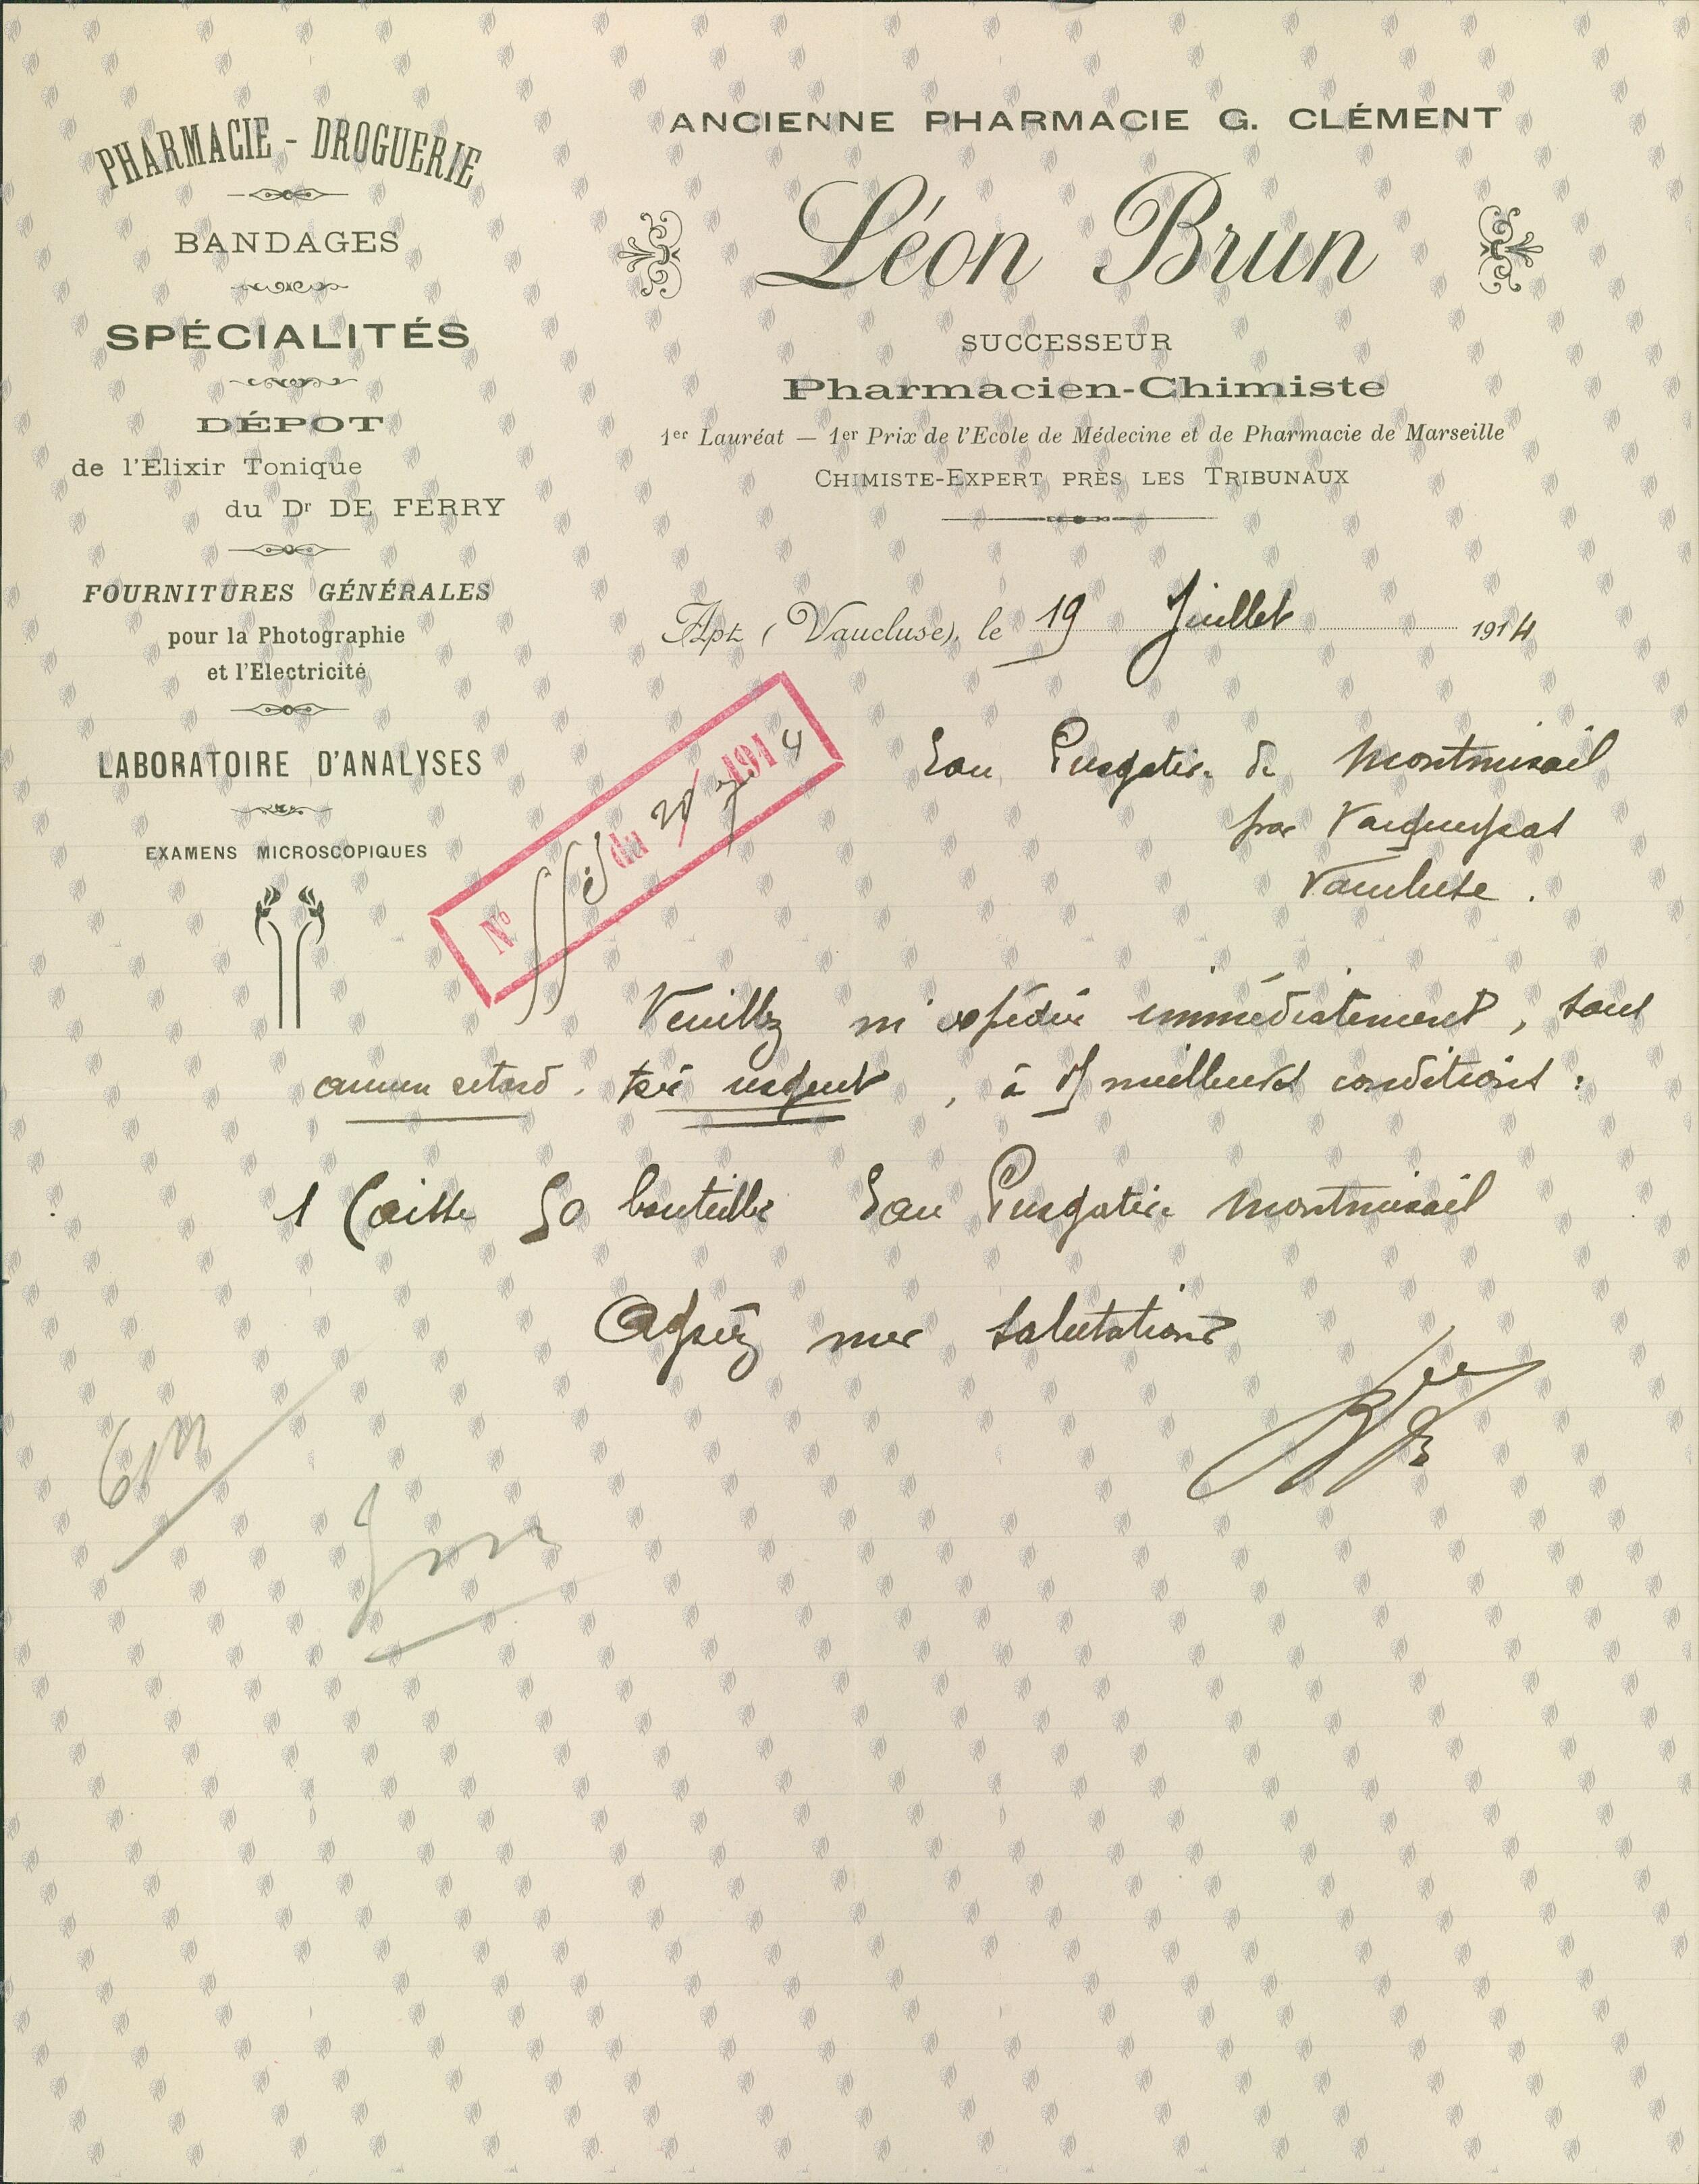 PHARMACIE - DROGUERIE
BANDAGES
SPÉCIALITÉS
DÉPOT
de l'Elixir Tonique
du Dr DE FERRY
FOURNITURES GÉNÉRALES
pour la Photographie
et l'Electricité
LABORATOIRE D'ANALYSES
EXAMENS MICROSCOPIQUES
ANCIENNE PHARMACIE G. CLÉMENT
Léon Brun
SUCCESSEUR
Pharmacien-Chimiste
1er Lauréat — 1er Prix de l'Ecole de Médecine et de Pharmacie de Marseille
CHIMISTE-EXPERT PRÈS LES TRIBUNAUX
Apt (Vaucluse), le 19 Juillet 1914
No du 1914
Eau Purgative de Montmirail
par Vacqueyras
Vaucluse.
Veuillez m'expédier immédiatement, sans
aucun retard, très urgent, à meilleures conditions :
1 Caisse 50 bouteilles Eau Purgative Montmirail
Agréez mes salutations